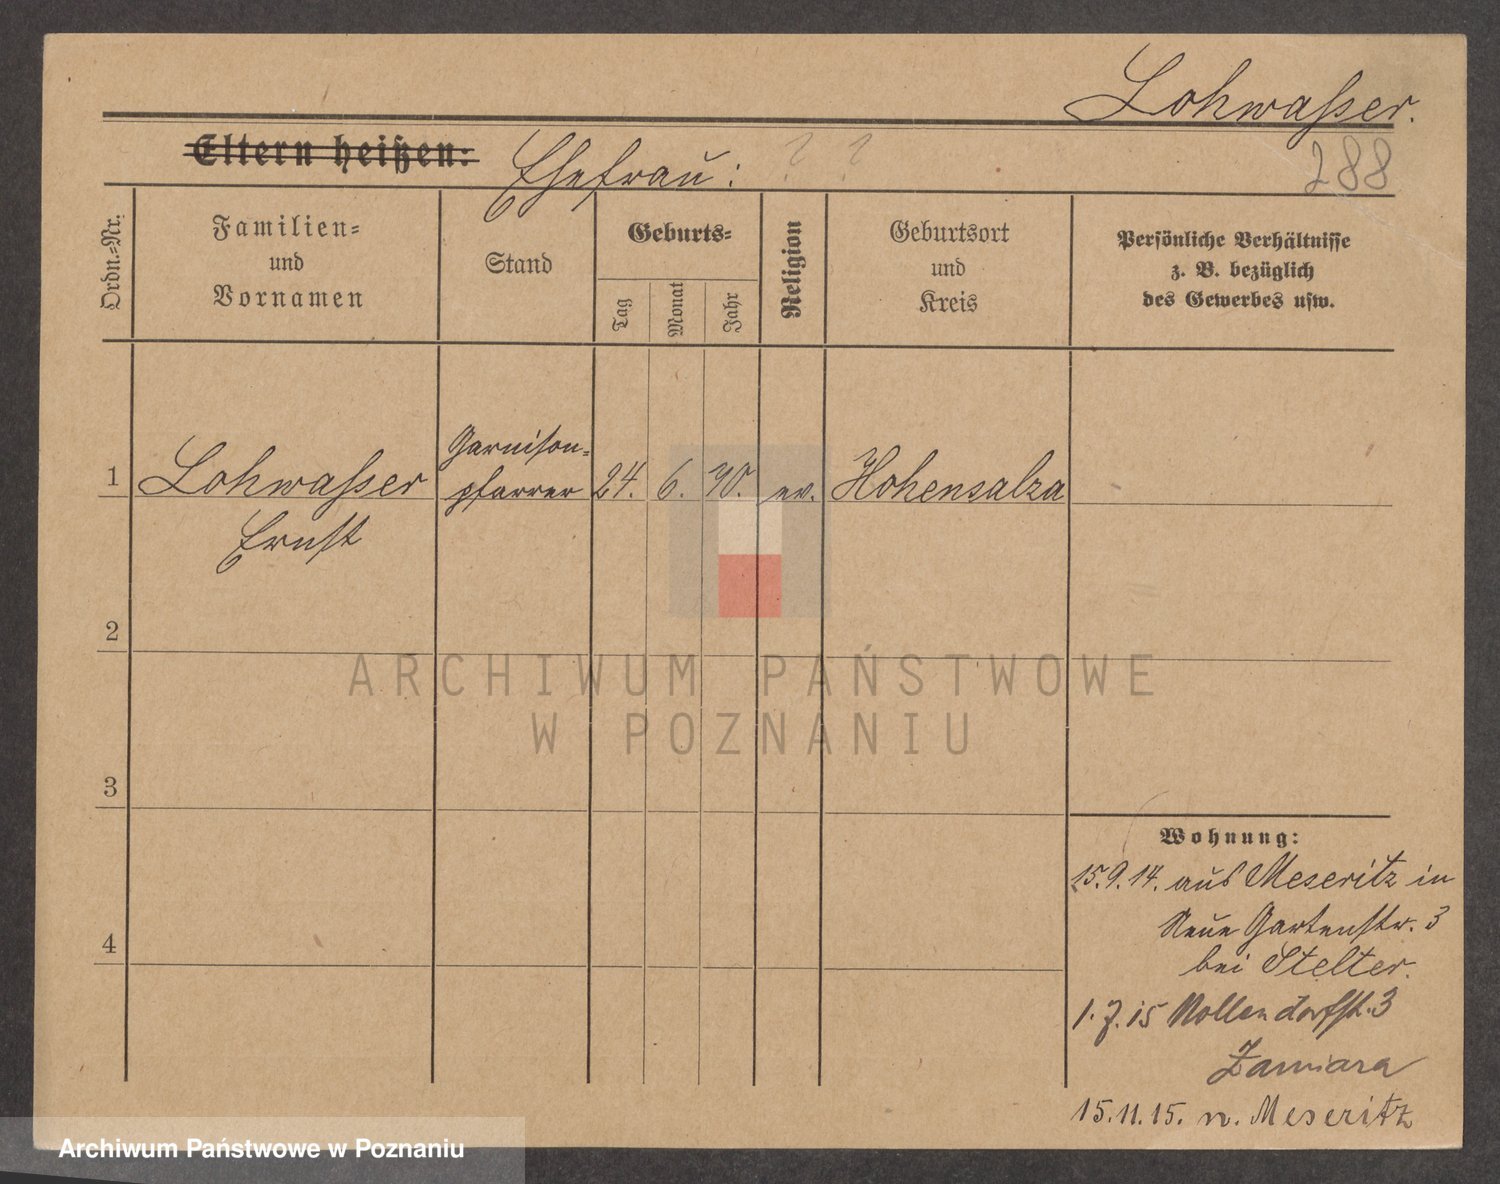 Lohwasser.
Eltern heißen: Ehefrau: ? ?
288
Ordn.=Nr.
Familien=
und
Vornamen
Stand
Geburts=
Tag
Monat
Jahr
Religion
Geburtsort
und
Kreis
Persönliche Verhältnisse
z. B. bezüglich
des Gewerbes usw.
1
Lohwasser
Ernst
Garnison=
pfarrer
24. 6. 90. ev. Hohensalza
2
3
4
Wohnung:
15.9.14. aus Meseritz in
Neue Gartenstr. 3
bei Stelter.
1.7.15 Nollendorfstr. 3
15.11.15. n. Meseritz
ARCHIWUM PAŃSTWOWE
W POZNANIU
Archiwum Państwowe w Poznaniu